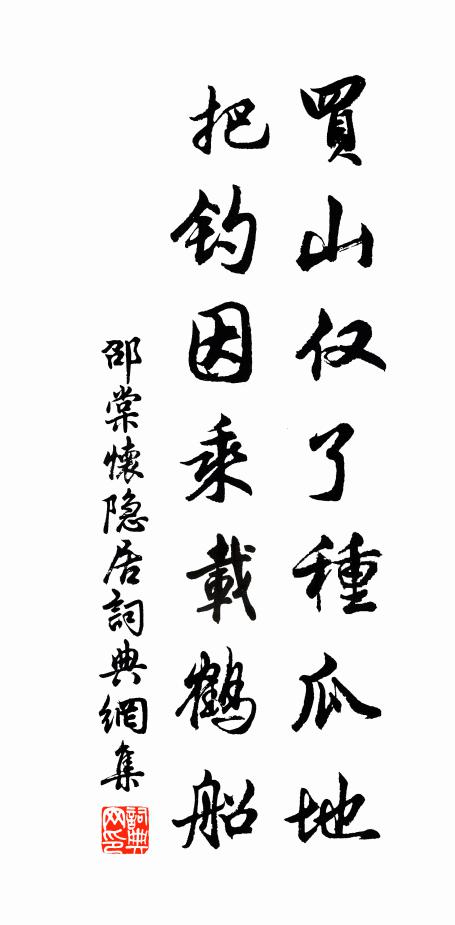 買山仅了種瓜地
把钓因乘載鹤船
邵棠懷隐居詞典網集
詞典网印